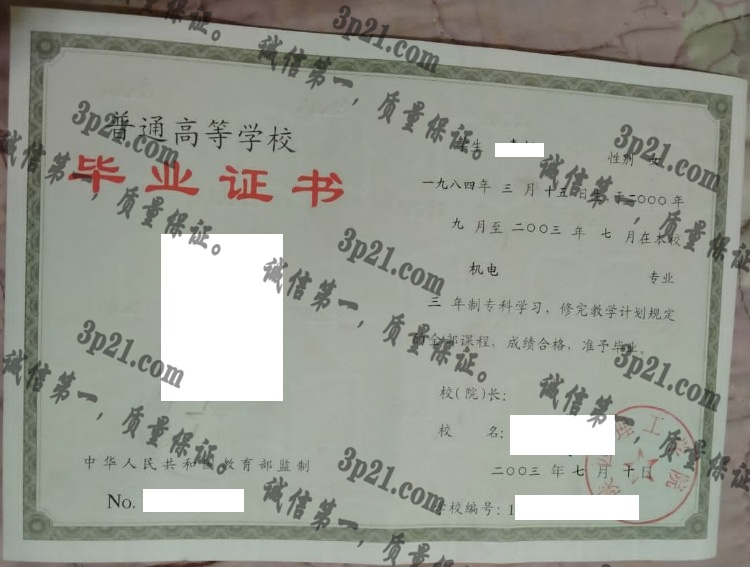 普通高等学校
毕业证书
中华人民共和国教育部监制
No.
学生
性别 女
一九八四年 三 月 十五日生,于二〇〇〇年
九 月至 二〇〇三 年 七 月在本校
机电 专业
三 年制专科学习,修完教学计划规定
的全部课程,成绩合格,准予毕业。
校(院)长:
校 名:
二〇〇三 年 七 月 十日
学校编号:1
3p21.com
诚信第一,质量保证。
3p21.com
诚信第一,质量保证。
3p21.com
诚信第一,质量保证。
3p21.com
诚信第一,质量保证。
3p21.com
诚信第一,质量保证。
3p21.com
诚信第一,质量保证。
3p21.com
诚信第一,质量保证。